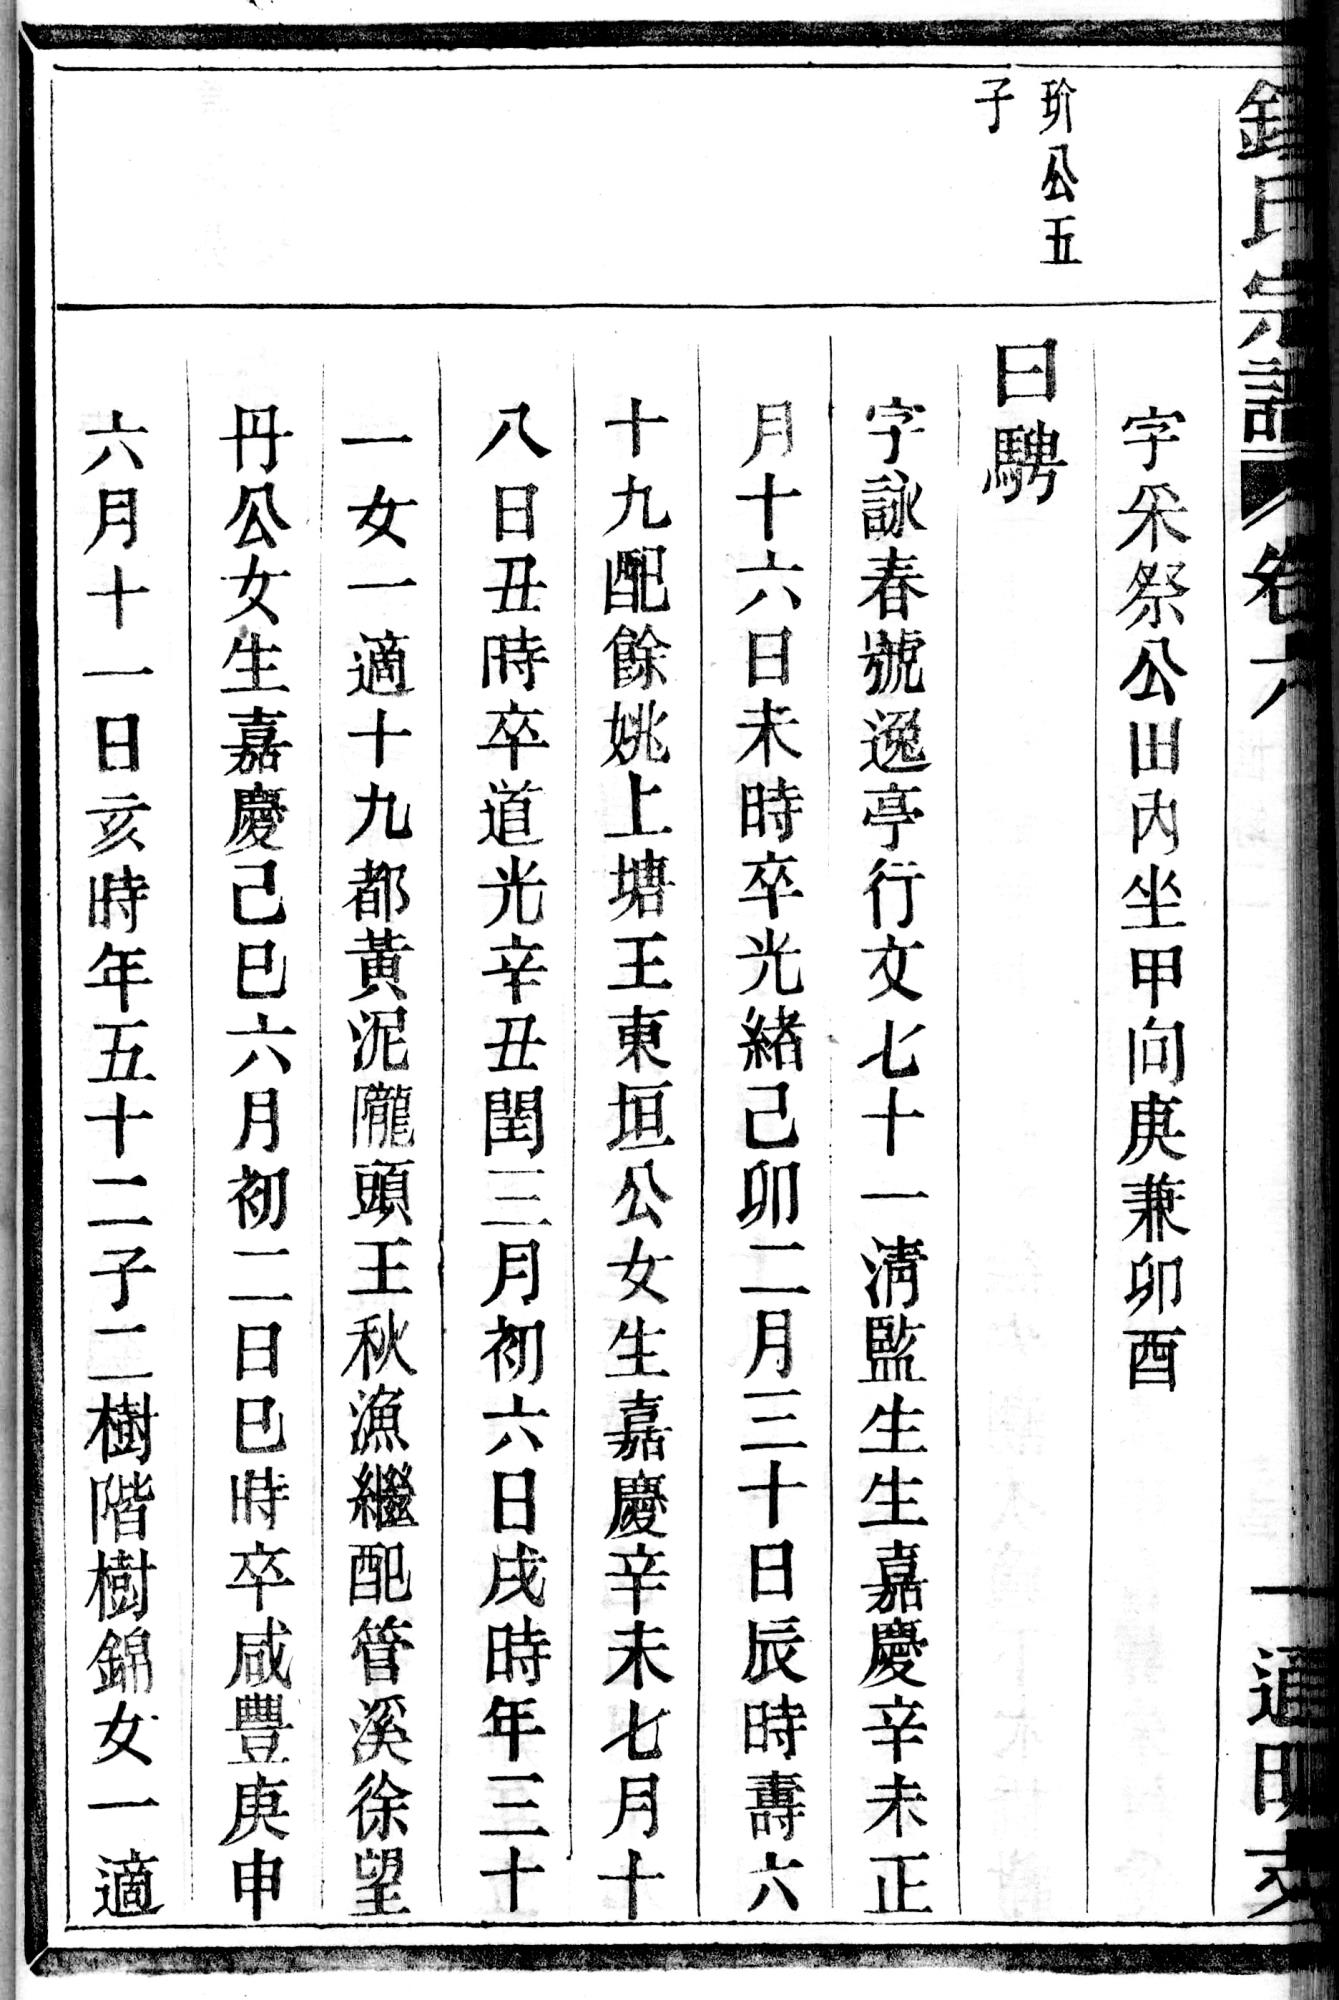 氏宗譜 卷
通明
字釆祭公田內坐甲向庚兼卯酉
玠公五
子
曰騁
字詠春號逸亭行文七十一淸監生生嘉慶辛未正
月十六日未時卒光緒己卯二月三十日辰時壽六
十九配餘姚上塘王東垣公女生嘉慶辛未七月十
八日丑時卒道光辛丑閏三月初六日戌時年三十
一女一適十九都黃泥隴頭王秋漁繼配管溪徐望
丹公女生嘉慶己巳六月初二日巳時卒咸豐庚申
六月十一日亥時年五十二子二樹階樹錦女一適